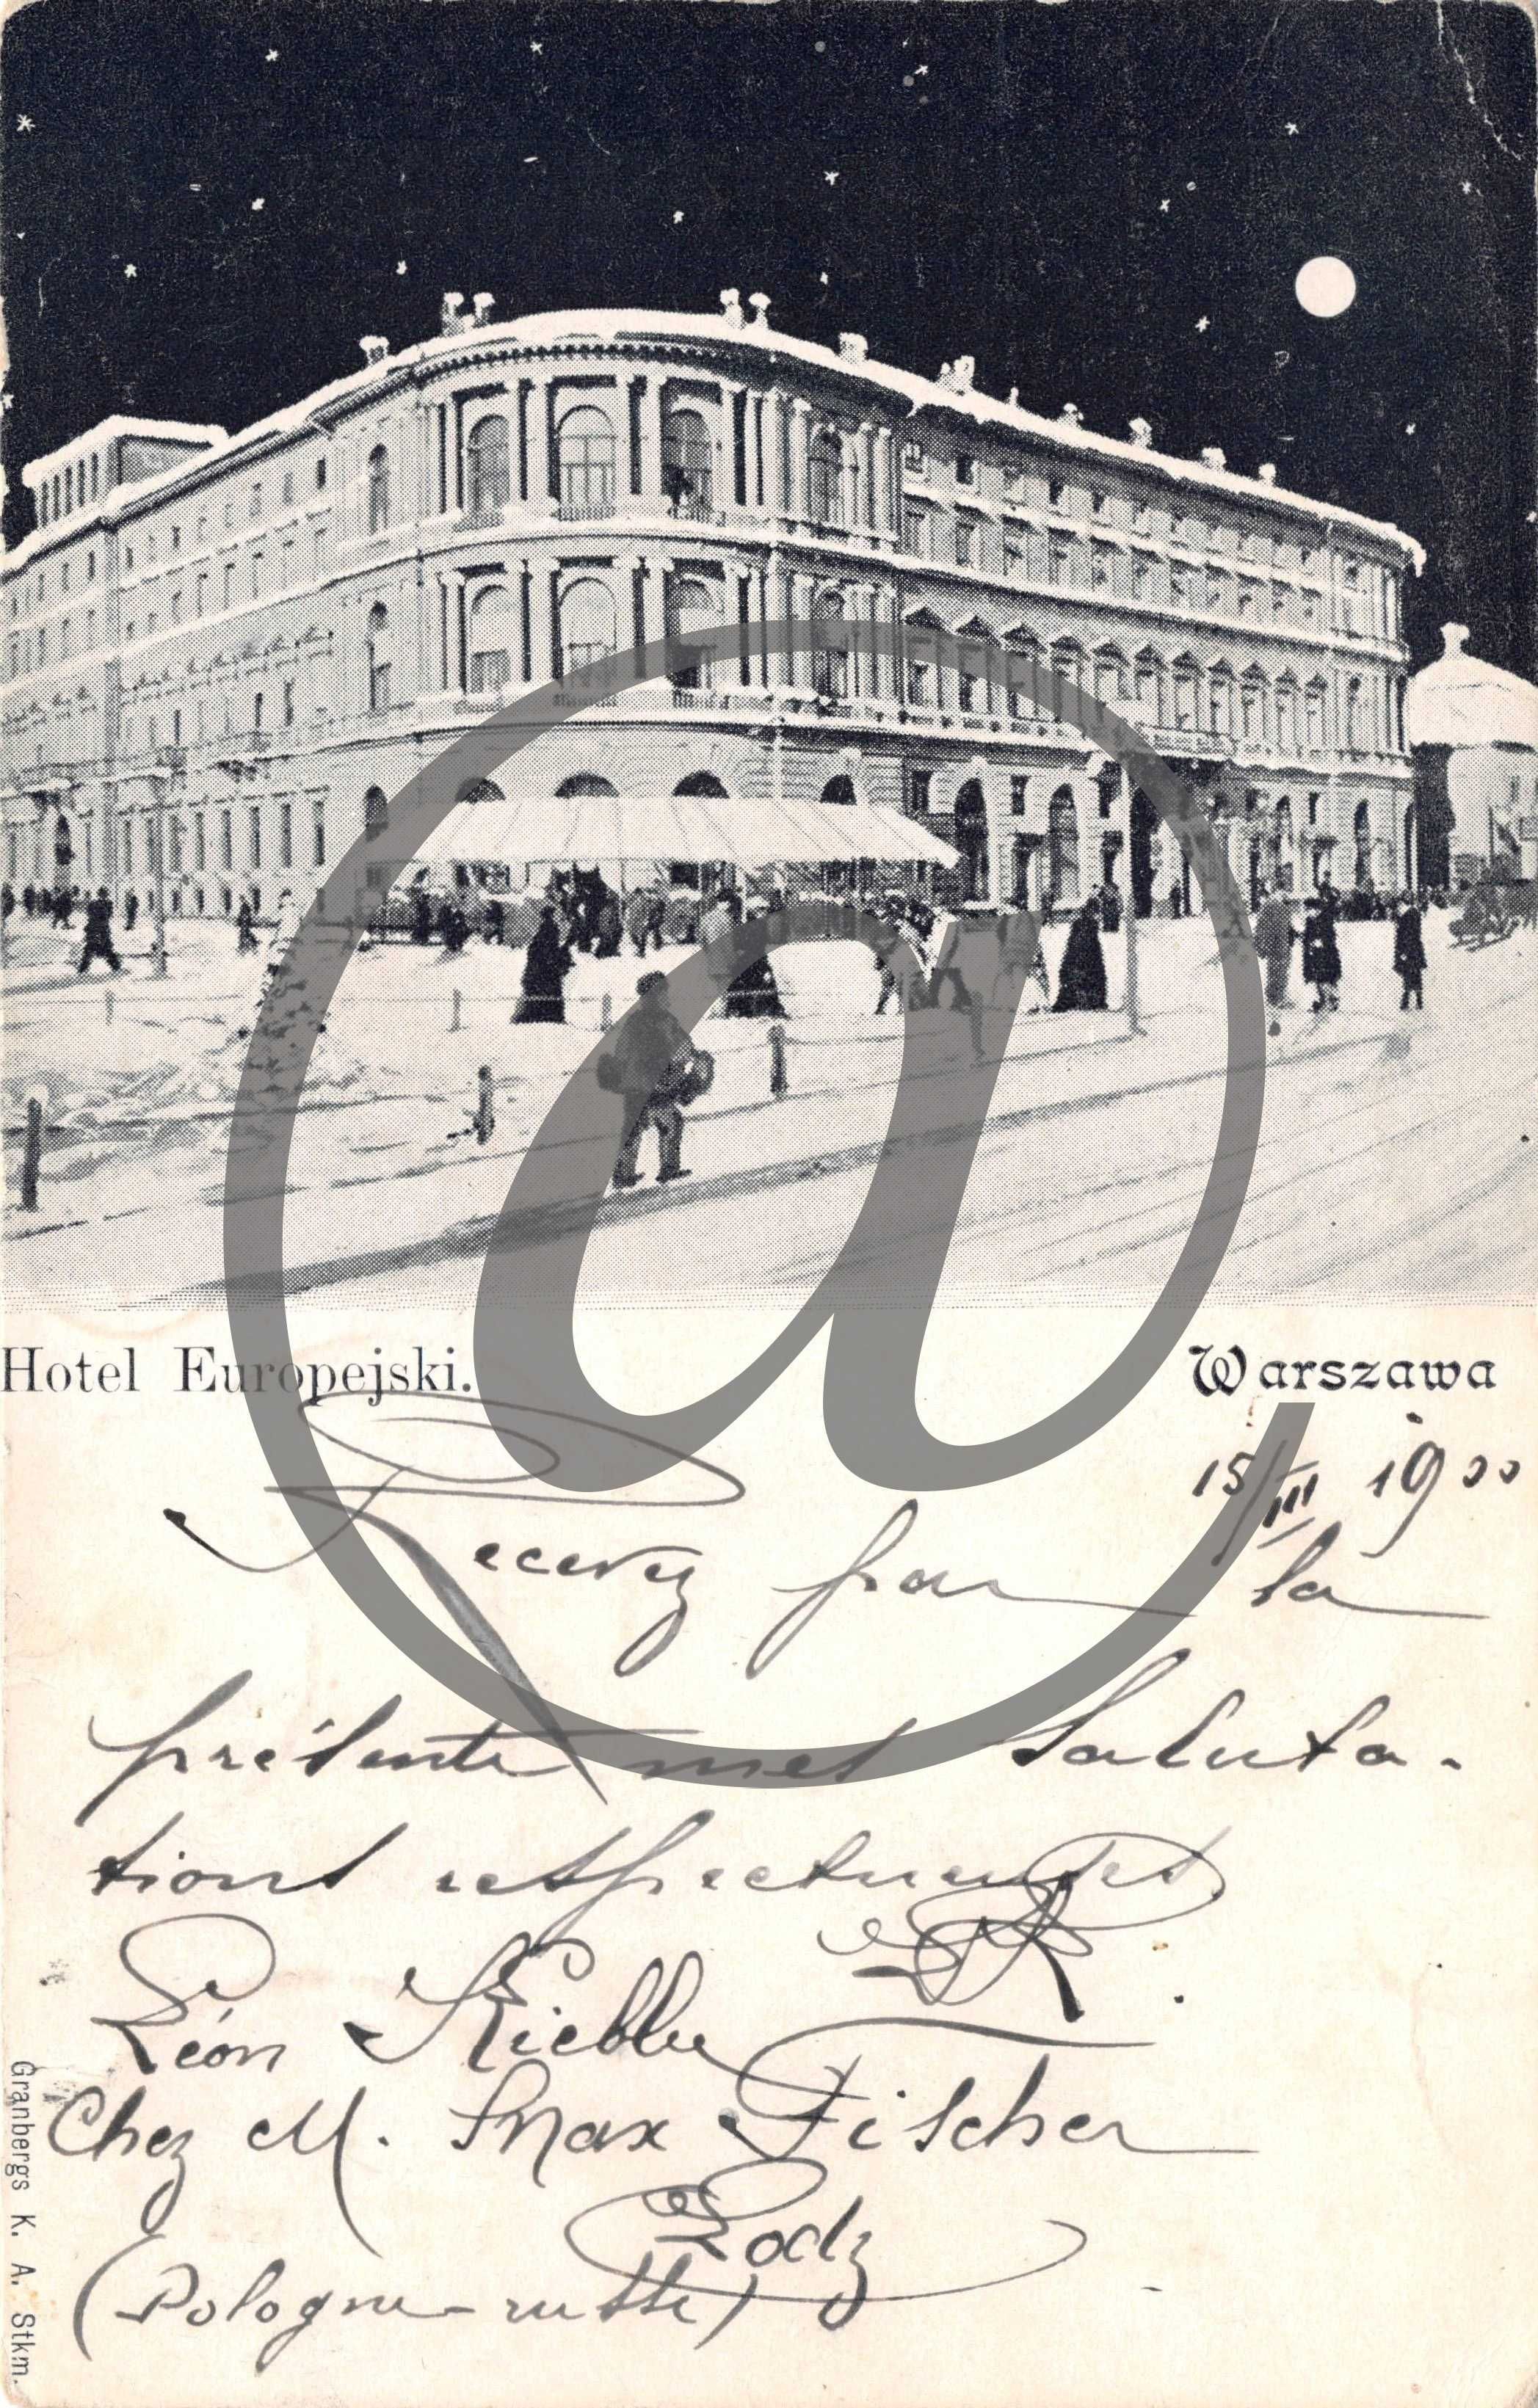 Hotel Europejski.
Warszawa
15/III 1900
Recevez par la
présente mes Saluta-
tions respectueuses
Léon
Chez M. Max Fischer
Lodz
(Pologne-russe)
Granbergs K. A. Stkm.
@